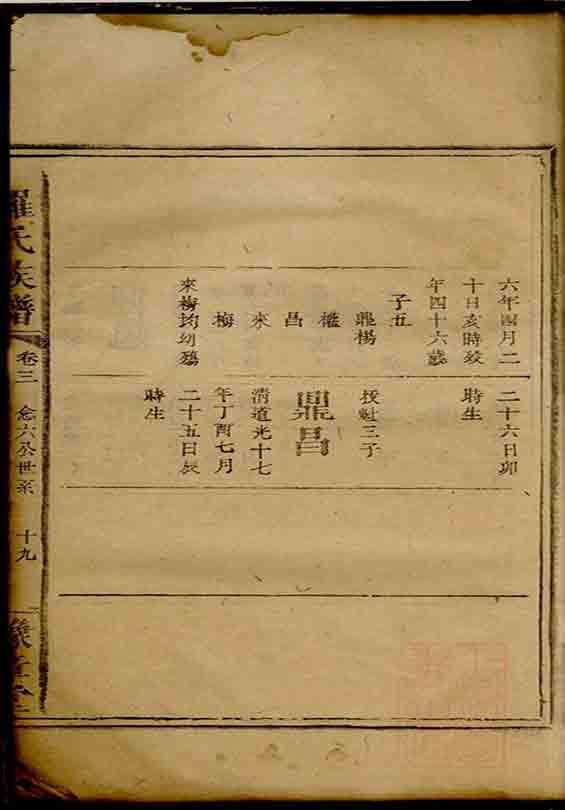 六年四月二
十日亥時歿
年四十六歲
子五
鼎楊
昌
來
梅
來梅均幼殤
二十六日卯
時生
授魁三子
鼎昌
清道光十七
年丁酉七月
二十五日辰
時生
羅氏族譜
卷三
念六公世系
十九
豫章堂